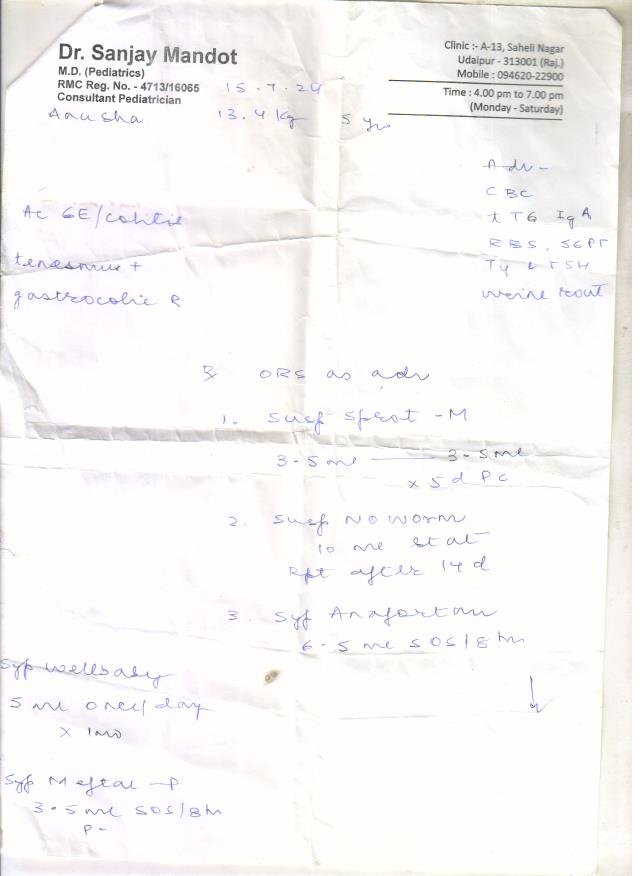 Dr. Sanjay Mandot
M.D. (Pediatrics)
RMC Reg. No. - 4713/16065
Consultant Pediatrician
Clinic :- A-13, Saheli Nagar
Udaipur - 313001 (Raj.)
Mobile : 094620-22900
Time : 4.00 pm to 7.00 pm
(Monday - Saturday)
15.7.24
Anusha 13.4 kg 5 yrs
Adv -
CBC
tTG IgA
RBS, SGPT
T4 & TSH
urine rout
Ac GE/colitis
tenesmus +
gastrocolic R
Rx ORS as adv
1. Susp -M
3.5 ml 3.5 ml
x 5 d Pc
2. Susp Noworm
10 ml stat
Rpt after 14 d
3. Syp Anafortan
6.5 ml SOS/8 hr
Syp wellbaby
5 ml once/day
x 1mo
Syp Meftal -P
3.5 ml SOS/8 hr
Pc